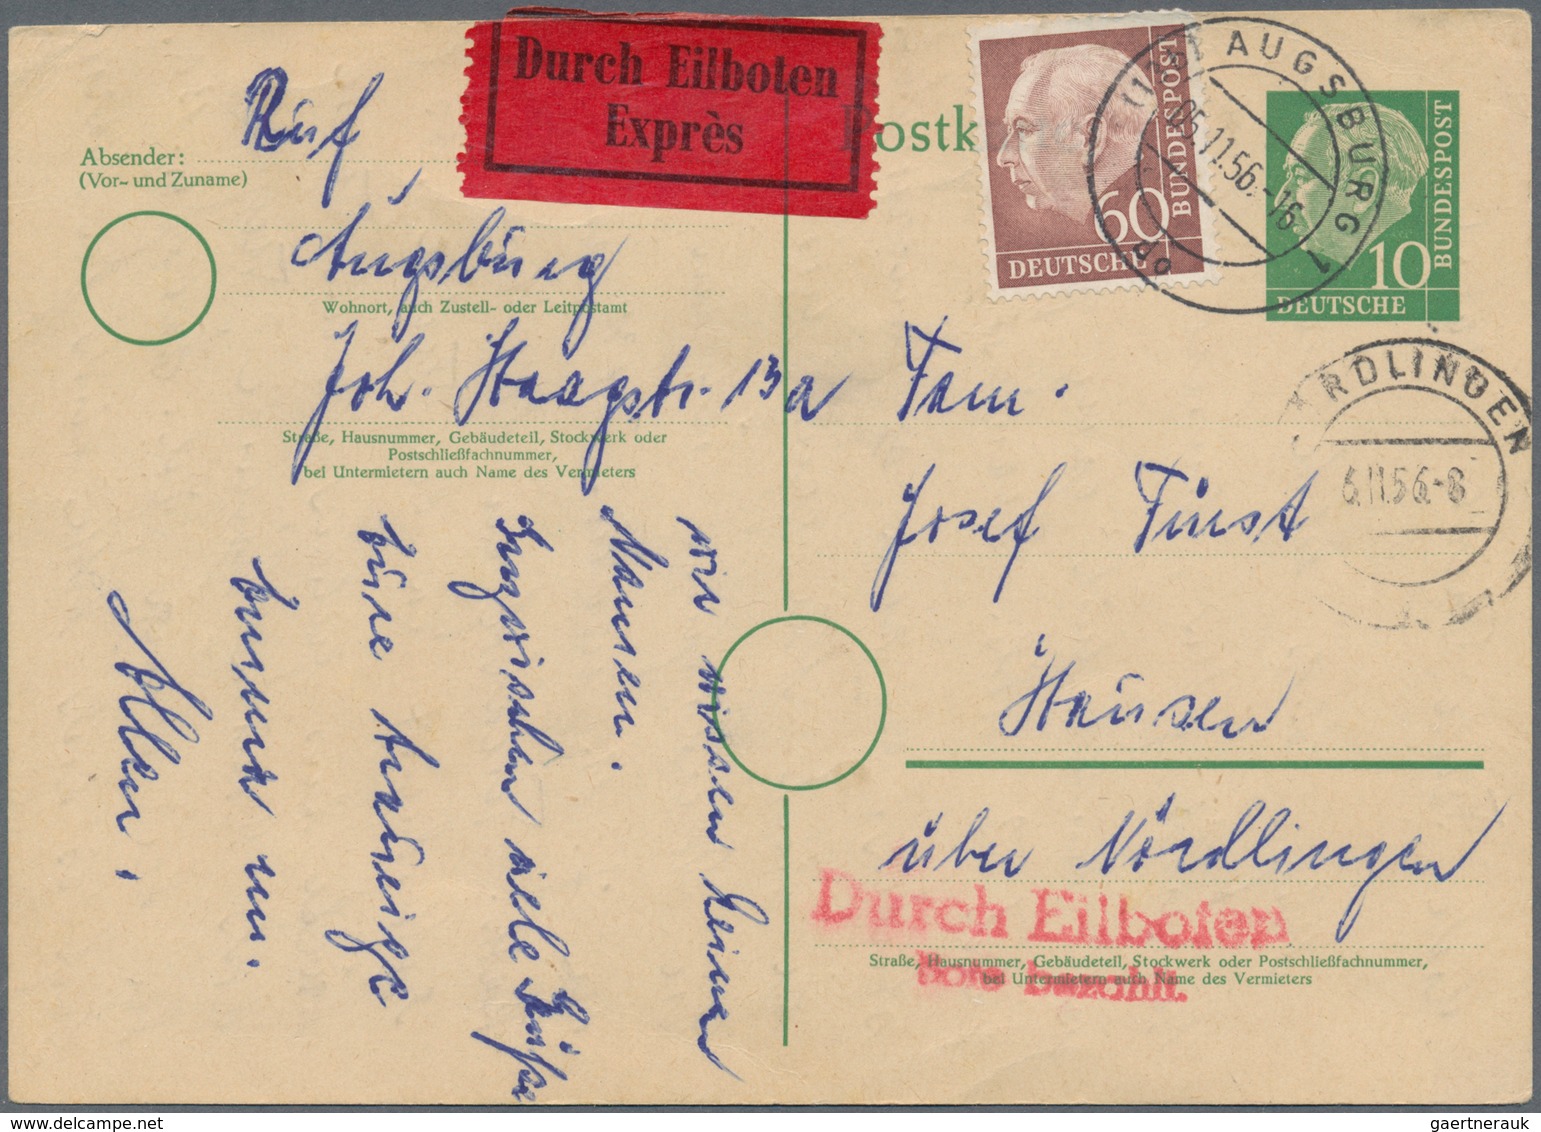 Durch Eilboten
Exprès
Postk
Absender: Ruf
(Vor- und Zuname)
Augsburg
Wohnort, auch Zustell- oder Leitpostamt
Joh. Haagstr. 13a
Straße, Hausnummer, Gebäudeteil, Stockwerk oder
Postschließfachnummer,
bei Untermietern auch Name des Vermieters
wir wissen keinen
Namen.
Inzwischen viele Grüße
Eure traurige
Emma m.
Allen.
60
DEUTSCHE
BUNDESPOST
AUGSBURG 1
05.11.56.-16
10
DEUTSCHE
BUNDESPOST
RDLINGEN
6.11.56.-8
Fam.
Josef
Hausen
über Nördlingen
Durch Eilboten
Bote bezahlt.
Straße, Hausnummer, Gebäudeteil, Stockwerk oder Postschließfachnummer,
bei Untermietern auch Name des Vermieters
gaertnerauk @ delcampe.net